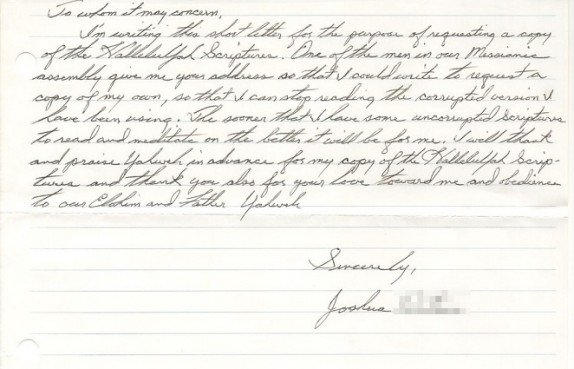 To whom it may concern,
I'm writing this short letter for the purpose of requesting a copy
of the HalleluYah Scriptures. One of the men in our Missianic
assembly give me your address so that I could write to request a
copy of my own, so that I can stop reading the corrupted version I
have been using. The sooner that I have some uncorrupted Scriptures
to read and meditate on the better it will be for me. I will thank
and praise Yahweh in advance for my copy of the HalleluYah Scrip-
tures and thank you also for your love toward me and obedience
to our Elohim and Father Yahweh
Sincerely,
Joshua